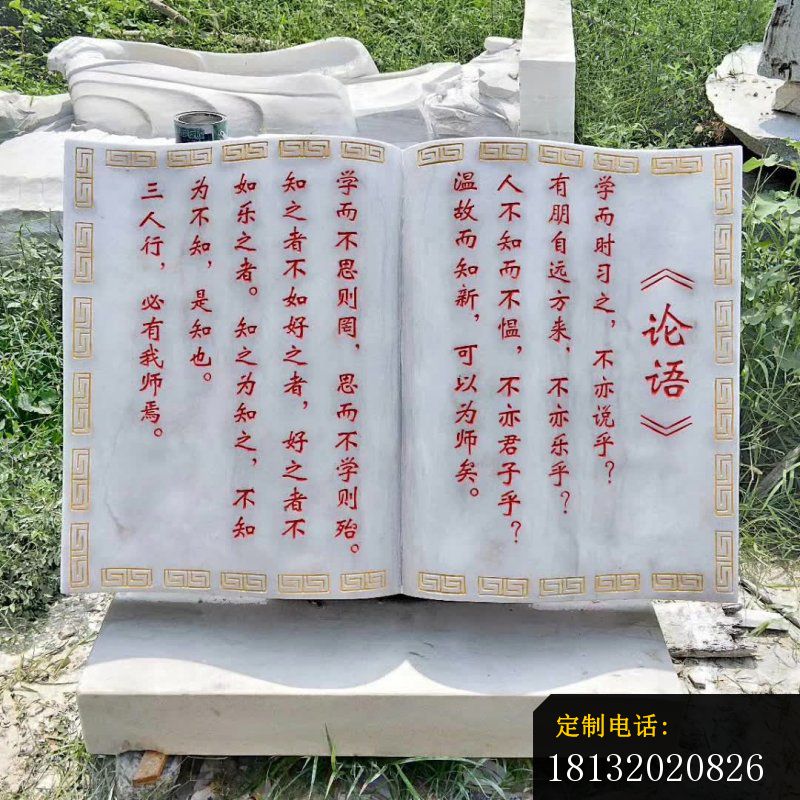 《论语》
学而时习之，不亦说乎？
有朋自远方来，不亦乐乎？
人不知而不愠，不亦君子乎？
温故而知新，可以为师矣。
学而不思则罔，思而不学则殆。
知之者不如好之者，好之者不
如乐之者。知之为知之，不知
为不知，是知也。
三人行，必有我师焉。
定制电话：
18132020826